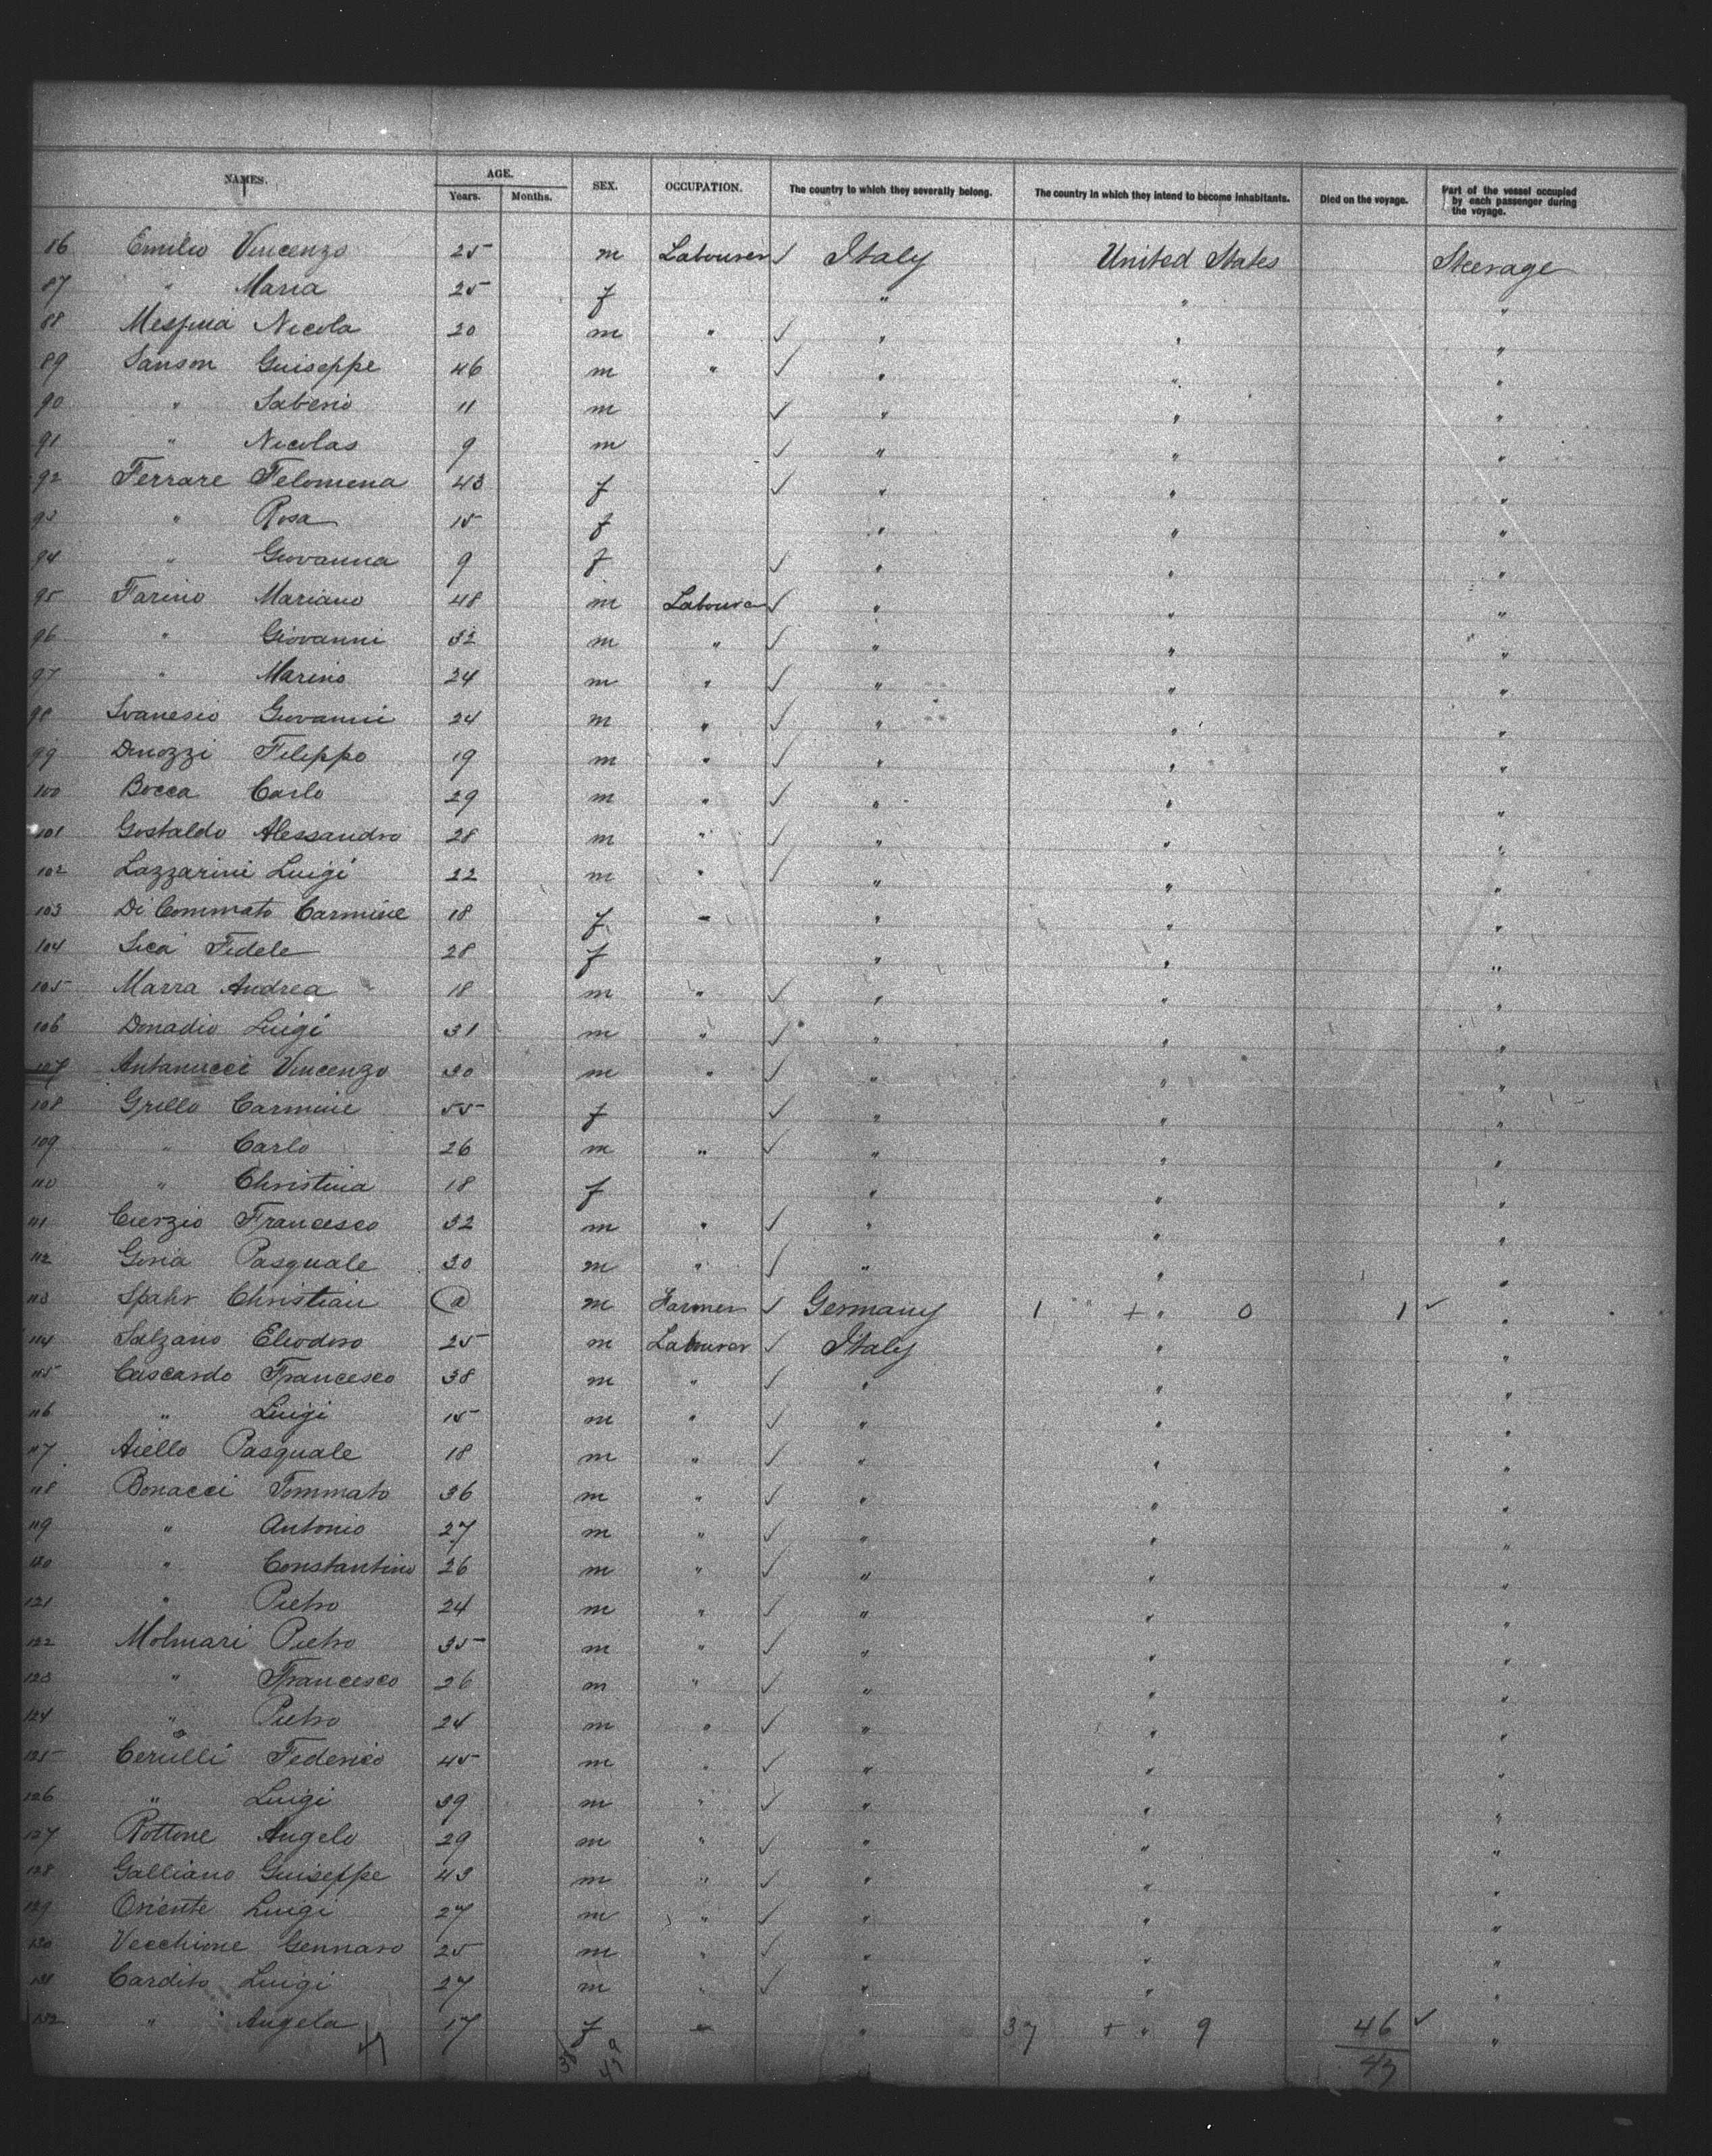 NAMES. AGE. SEX. OCCUPATION. The country to which they severally belong. The country in which they intend to become inhabitants. Died on the voyage. Part of the vessel occupied by each passenger during the voyage.
Years. Months.
86 Emilio Vincenzo 25 m Labourer ✓ Italy United States Steerage
87 " Maria 25 f " " "
88 Nicola 20 m " ✓ " " "
89 Sanson Guiseppe 46 m " ✓ " " "
90 " Saberio 11 m ✓ " " "
91 " Nicolas 9 m ✓ " " "
92 Ferrare Felomena 43 f ✓ " " "
93 " Rosa 15 f " " "
94 " Giovanna 9 f ✓ " " "
95 Farino Mariano 48 m Labourer ✓ " " "
96 " Giovanni 32 m " ✓ " " "
97 " Marino 24 m " ✓ " " "
98 Giovanni 24 m " ✓ " " "
99 Filippo 19 m " ✓ " " "
100 Bocca Carlo 29 m " ✓ " " "
101 Gostaldo Alessandro 28 m " ✓ " " "
102 Lazzarini Luigi 22 m " ✓ " " "
103 Di Commato Carmine 18 f - " " "
104 Sica Fidele 28 f " " "
105 Marra Andrea 18 m " ✓ " " "
106 Donadio Luigi 31 m " ✓ " " "
107 Antanucci Vincenzo 30 m " ✓ " " "
108 Grillo Carmine 55 f ✓ " " "
109 " Carlo 26 m " ✓ " " "
110 " Christina 18 f " " "
111 Francesco 32 m " ✓ " " "
112 Goria Pasquale 30 m " ✓ " " "
113 Spahr Christian m Farmer ✓ Germany 1 + " 0 1 ✓ "
114 Salzano Eliodoro 25 m Labourer ✓ Italy " "
115 Cascardo Francesco 38 m " ✓ " " "
116 " Luigi 15 m " ✓ " " "
117 Aiello Pasquale 18 m " ✓ " " "
118 Bonacci Tommato 36 m " ✓ " " "
119 " Antonio 27 m " ✓ " " "
120 " Constantino 26 m " ✓ " " "
121 " Pietro 24 m " ✓ " " "
122 Molinari Pietro 35 m " ✓ " " "
123 " Francesco 26 m " ✓ " " "
124 " Pietro 24 m " ✓ " " "
125 Cerulli Federico 45 m " ✓ " " "
126 " Luigi 39 m " ✓ " " "
127 Rottone Angelo 29 m " ✓ " " "
128 Galliano Guiseppe 43 m " ✓ " " "
129 Oriente Luigi 27 m " ✓ " " "
130 Vecchione Gennaro 25 m " ✓ " " "
131 Cardito Luigi 27 m " ✓ " " "
132 " Angela 17 f - " 37 + " 9 46 ✓ "
47 38 9 47 47